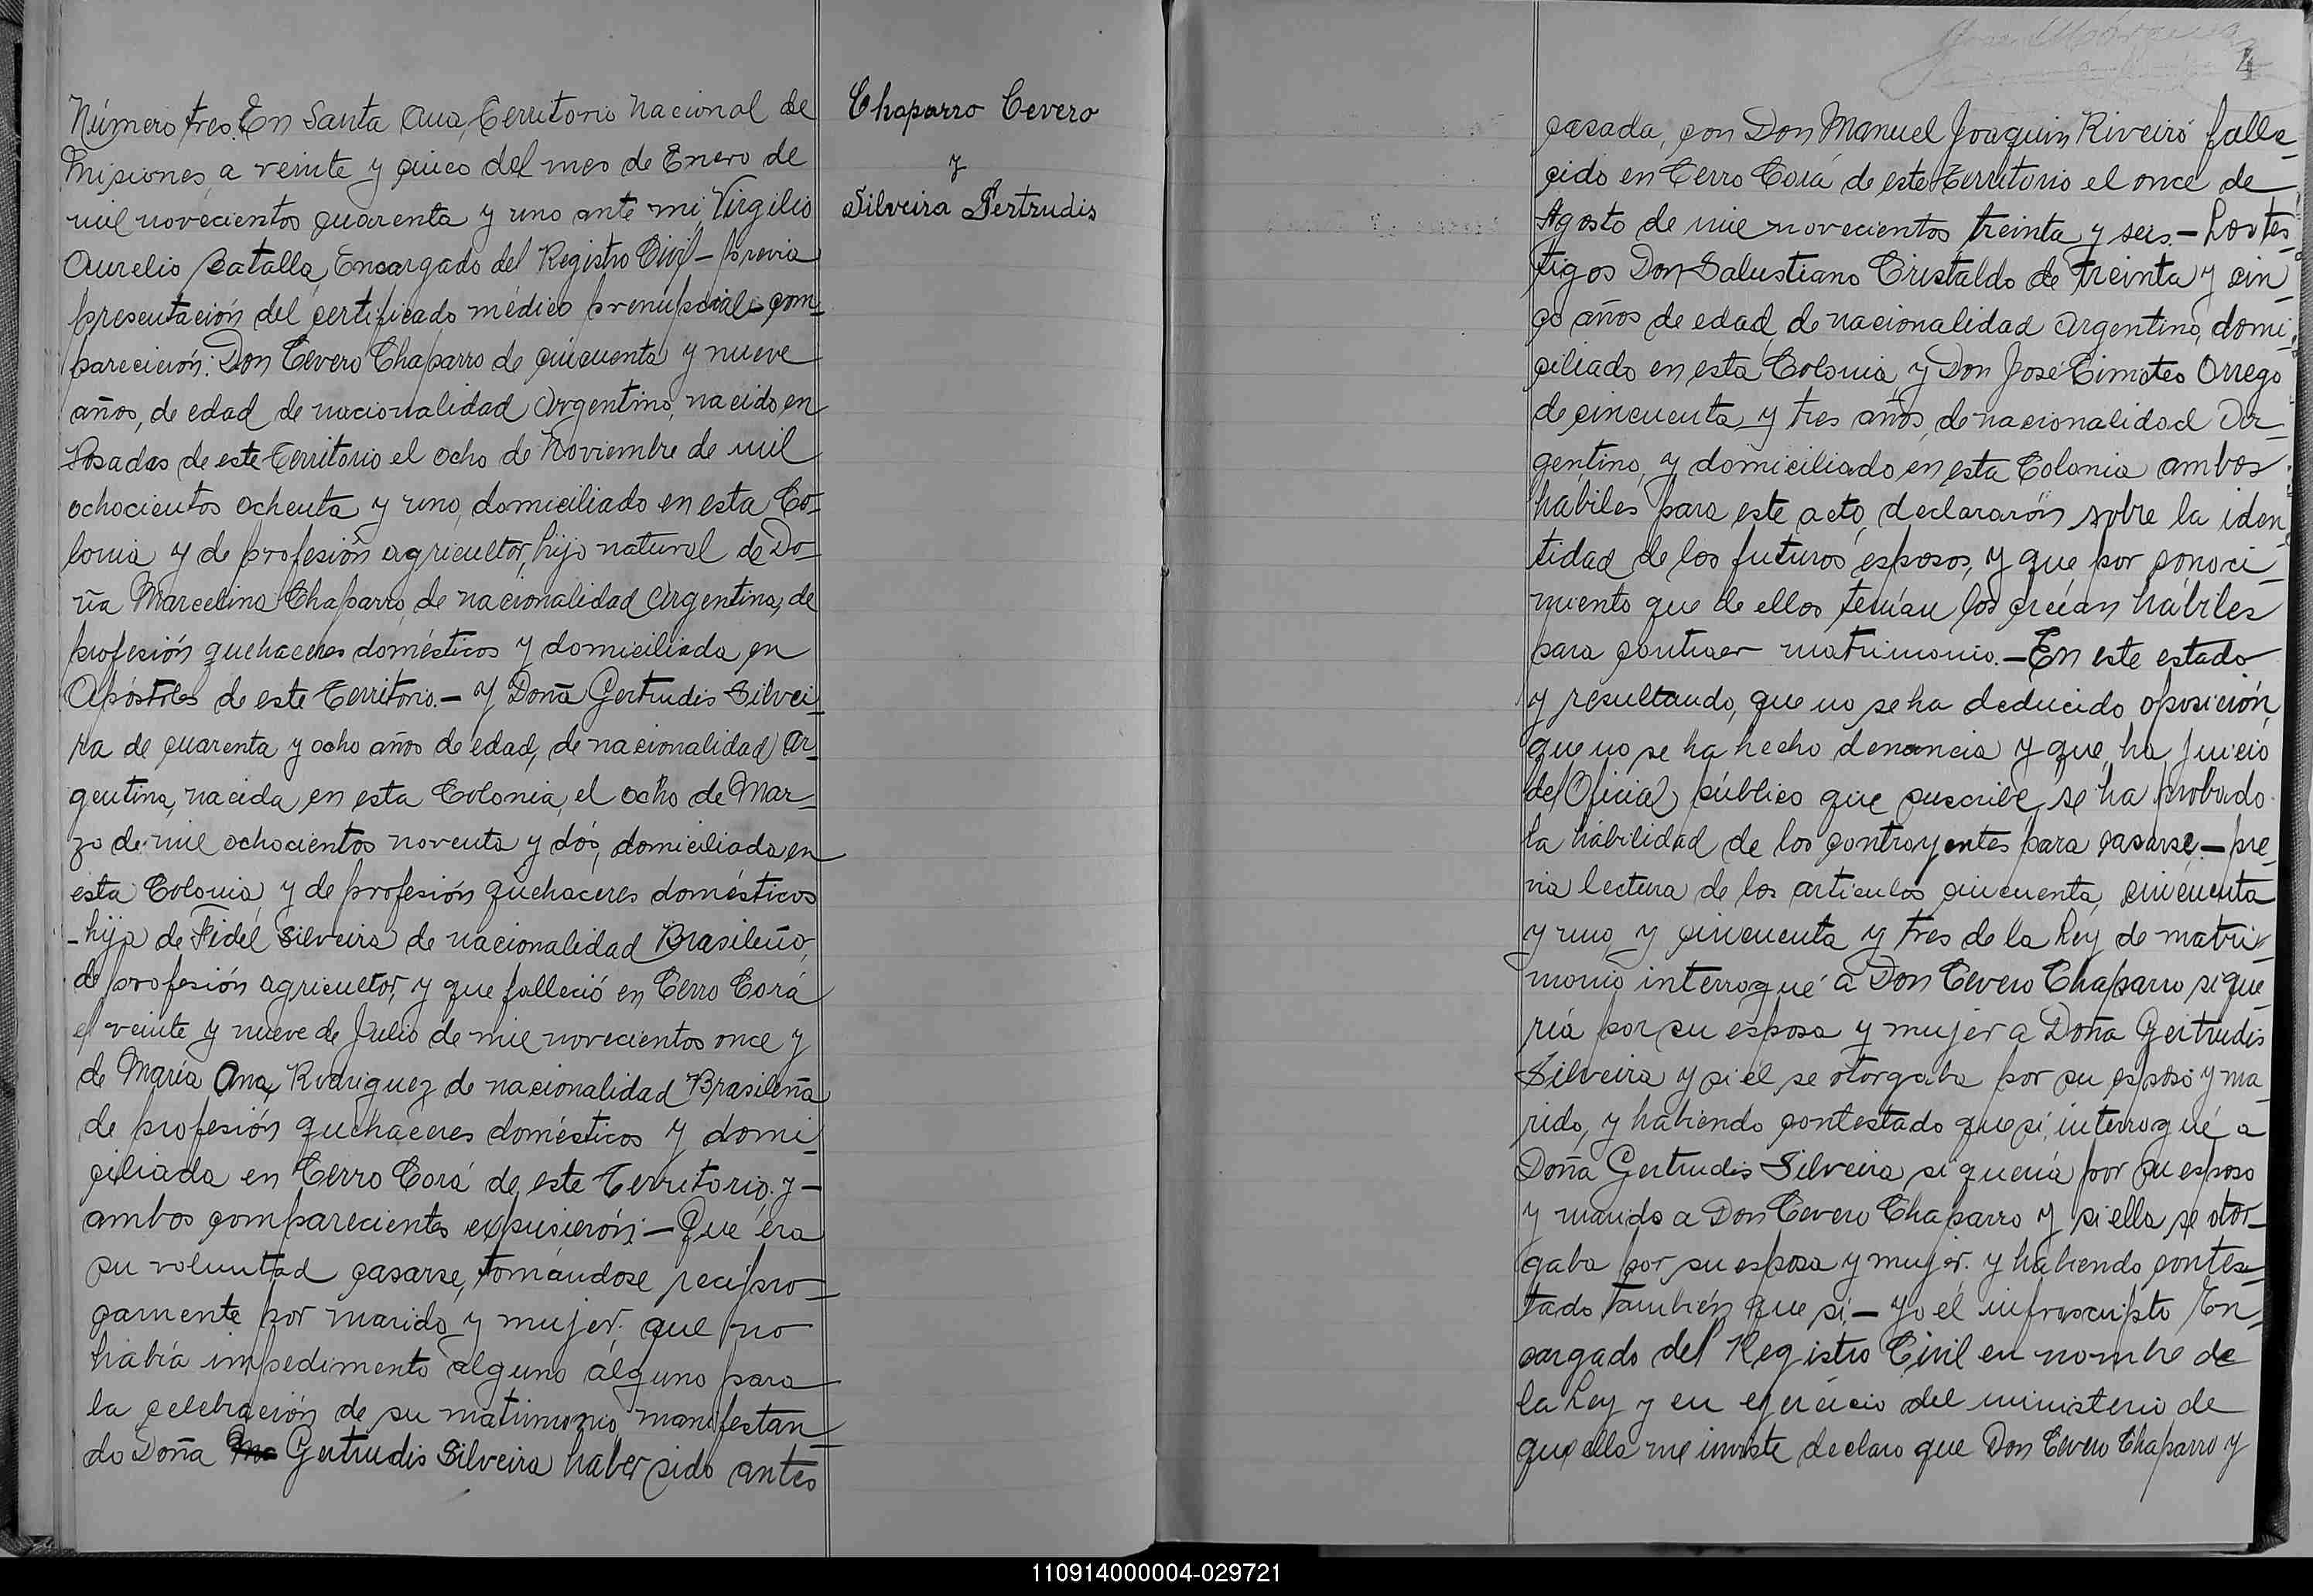 Número tres. En Santa Ana, Territorio Nacional de
Misiones, a veinte y cinco del mes de Enero de
mil novecientos cuarenta y uno ante mí, Virgilio
Aurelio Batalla, Encargado del Registro Civil - previa
presentación del certificado médico prenupcial - com-
parecieron: Don Cevero Chaparro de cincuenta y nueve
años, de edad de nacionalidad Argentino, nacido en
Posadas de este Territorio el ocho de Noviembre de mil
ochocientos ochenta y uno, domiciliado en esta Co-
lonia y de profesión agricultor, hijo natural de Do-
ña Marcelina Chaparro, de nacionalidad Argentina, de
profesión quehaceres domésticos y domiciliada en
Apóstoles de este Territorio. - Y Doña Gertrudis Silvei-
ra de cuarenta y ocho años de edad, de nacionalidad Ar-
gentina, nacida en esta Colonia, el ocho de Mar-
zo de mil ochocientos noventa y dos, domiciliada en
esta Colonia, y de profesión quehaceres domésticos
- hija de Fidel Silveira de nacionalidad Brasileño,
de profesión agricultor, y que falleció en Cerro Corá
el veinte y nueve de Julio de mil novecientos once y
de María Ana Rodriguez de nacionalidad Brasileña
de profesión quehaceres domésticos y domi-
ciliada en Cerro Corá de este Territorio. y -
ambos comparecientes expusierón: - Que era
su voluntad casarse, tomándose recipro-
camente por marido y mujer; que no
había impedimento alguno alguno para
la celebración de su matrimonio, manifestan-
do Doña Gertrudis Silveira haber sido antes
Chaparro Cevero
y
Silveira Gertrudis
4
casada, con Don Manuel Joaquin Riveiro falle-
cido en Cerro Corá de este Territorio el once de
Agosto de mil novecientos treinta y seis. - Los tes-
tigos Don Salustiano Cristaldo de treinta y cin-
co años de edad, de nacionalidad Argentino, domi-
ciliado en esta Colonia, y Don José Timoteo Orrego
de cincuenta y tres años, de nacionalidad Ar-
gentino, y domiciliado en esta Colonia ambos
habiles para este acto, declararón sobre la iden-
tidad de los futuros esposos, y que por conoci-
miento que de ellos tenían los creían hábiles
para contraer matrimonio. - En este estado
y resultando, que no se ha deducido oposición,
que no se ha hecho denuncia y que, ha juicio
del Oficial público que suscribe, se ha probado
la habilidad de los contrayentes para casarse. - pre-
via lectura de los articulos cincuenta, cincuenta
y uno y cincuenta y tres de la Ley de matri-
monio interrogué a Don Cevero Chaparro si que-
ría por su esposa y mujer a Doña Gertrudis
Silveira y si él se otorgaba por su esposo y ma-
rido, y habiendo contestado que si, interrogué a
Doña Gertrudis Silveira si quería por su esposo
y marido a Don Cevero Chaparro y si ella se otor-
gaba por su esposa y mujer. y habiendo contes-
tado también que si, - yo el infrascripto En-
cargado del Registro Civil en nombre de
la Ley y en ejercicio del ministerio de
que ella me inviste declaro que Don Cevero Chaparro y
110914000004-029721